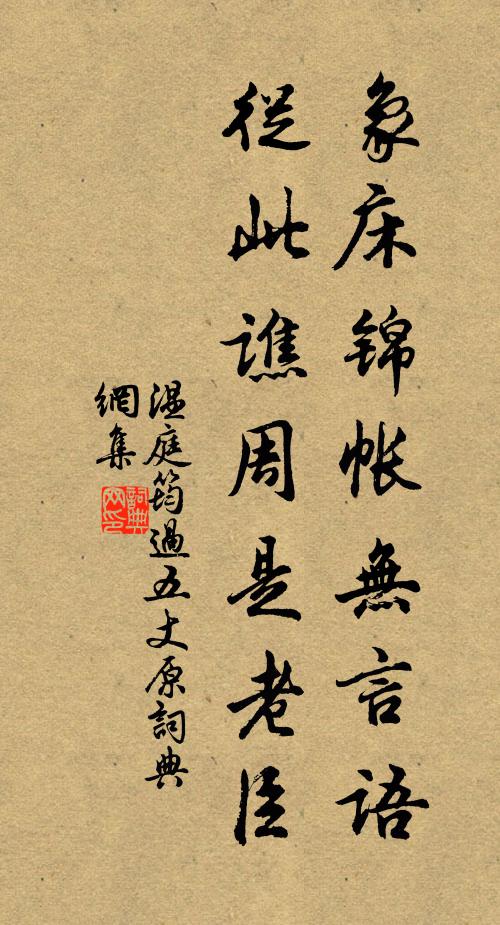 象床锦帐無言語
從此譙周是老臣
温庭筠過五丈原詞典
網集
詞典
网印